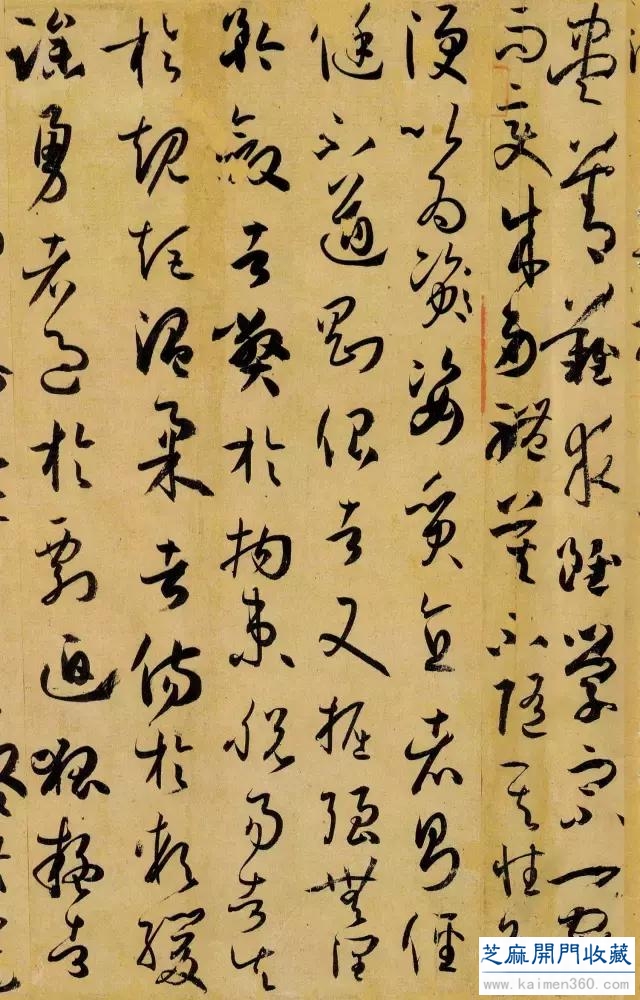 盡善難求雖學宗一家
而變成多體莫不隨其性欲
便以為資姿質直者則徑
侹不遒剛佷者又掘強無潤
矜斂者弊於拘束脫易者失
於規矩溫柔者傷於軟緩
躁勇者過於剽迫狐疑者
芝麻開門收藏
www.kaimen360.com